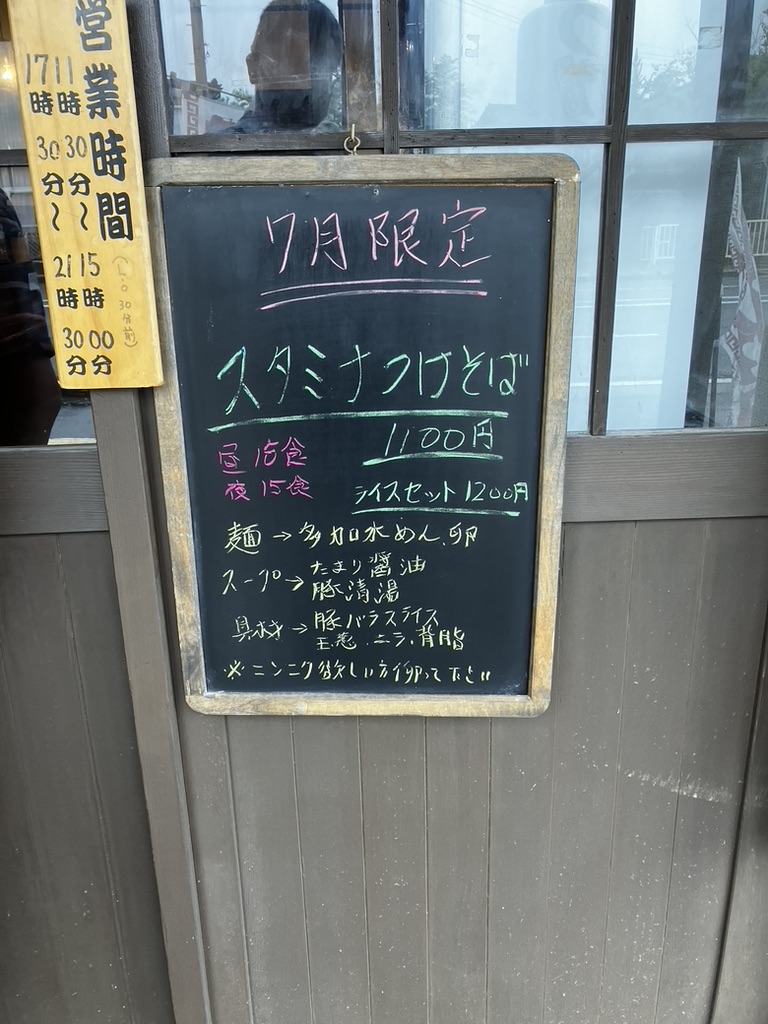 営業時間
11時30分～15時00分
(L.O 30分前)
17時30分～21時30分
7月限定
スタミナつけそば
1100円
昼15食
夜15食
ライスセット1200円
麺→多加水めん、卵
スープ→たまり醤油
豚清湯
具材→豚バラスライス
玉葱、ニラ、背脂
※ニンニク欲しい方仰って下さい